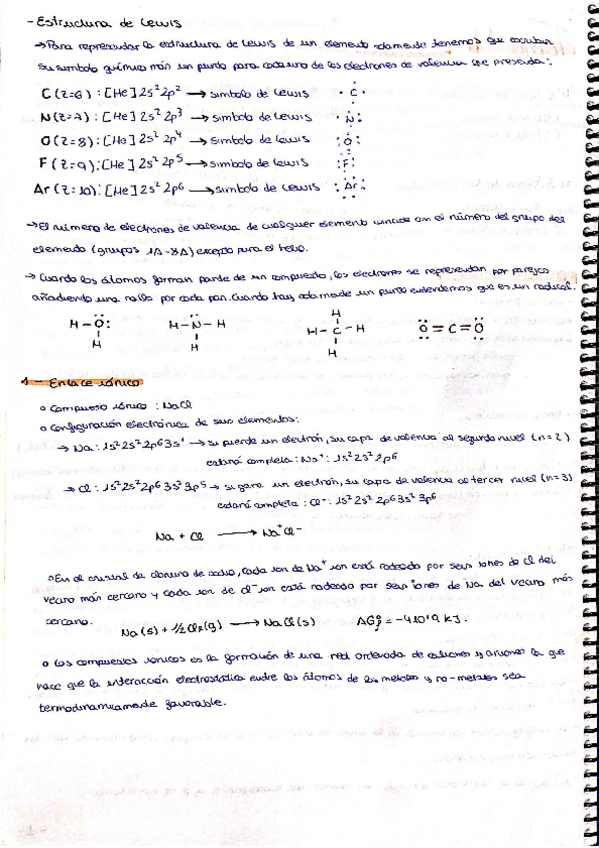 - Estructura de Lewis
→ Para representar la estructura de Lewis de un elemento solamente tenemos que escribir
su símbolo químico más un punto para cada uno de los electrones de valencia que presenta:
C (Z=6) : [He] 2s² 2p² → símbolo de Lewis · C ·
N (Z=7) : [He] 2s² 2p³ → símbolo de Lewis · N :
O (Z=8) : [He] 2s² 2p⁴ → símbolo de Lewis : O :
F (Z=9) : [He] 2s² 2p⁵ → símbolo de Lewis : F :
Ar (Z=10) : [He] 2s² 2p⁶ → símbolo de Lewis : Ar :
→ El número de electrones de valencia de cualquier elemento coincide con el número del grupo del
elemento (grupos 1A-8A) excepto para el helio.
→ Cuando los átomos forman parte de un compuesto, los electrones se representan por parejas
añadiendo una raya por cada par. Cuando hay solamente un punto entendemos que es un radical.
H
H – O : H – N – H H – C – H O = C = O
H H H
1 - Enlace iónico
o Compuesto iónico : NaCl
o Configuración electrónica de sus elementos:
→ Na : 1s² 2s² 2p⁶ 3s¹ → si pierde un electrón, su capa de valencia al segundo nivel (n=2)
estará completa : Na⁺ : 1s² 2s² 2p⁶
→ Cl : 1s² 2s² 2p⁶ 3s² 3p⁵ → si gana un electrón, su capa de valencia al tercer nivel (n=3)
estará completa : Cl⁻ : 1s² 2s² 2p⁶ 3s² 3p⁶
Na + Cl → Na⁺ Cl⁻
o En el cristal de cloruro de sodio, cada ion de Na⁺ ion está rodeado por seis iones de Cl del
vecino más cercano y cada ion de Cl⁻ ion está rodeada por seis iones de Na del vecino más
cercano.
Na (s) + ½ Cl₂ (g) → NaCl (s) ΔGf = -410'9 kJ.
o Los compuestos iónicos es la formación de una red ordenada de cationes y aniones la que
hace que la interacción electrostática entre los átomos de los metales y no-metales sea
termodinámicamente favorable.
- 1 -